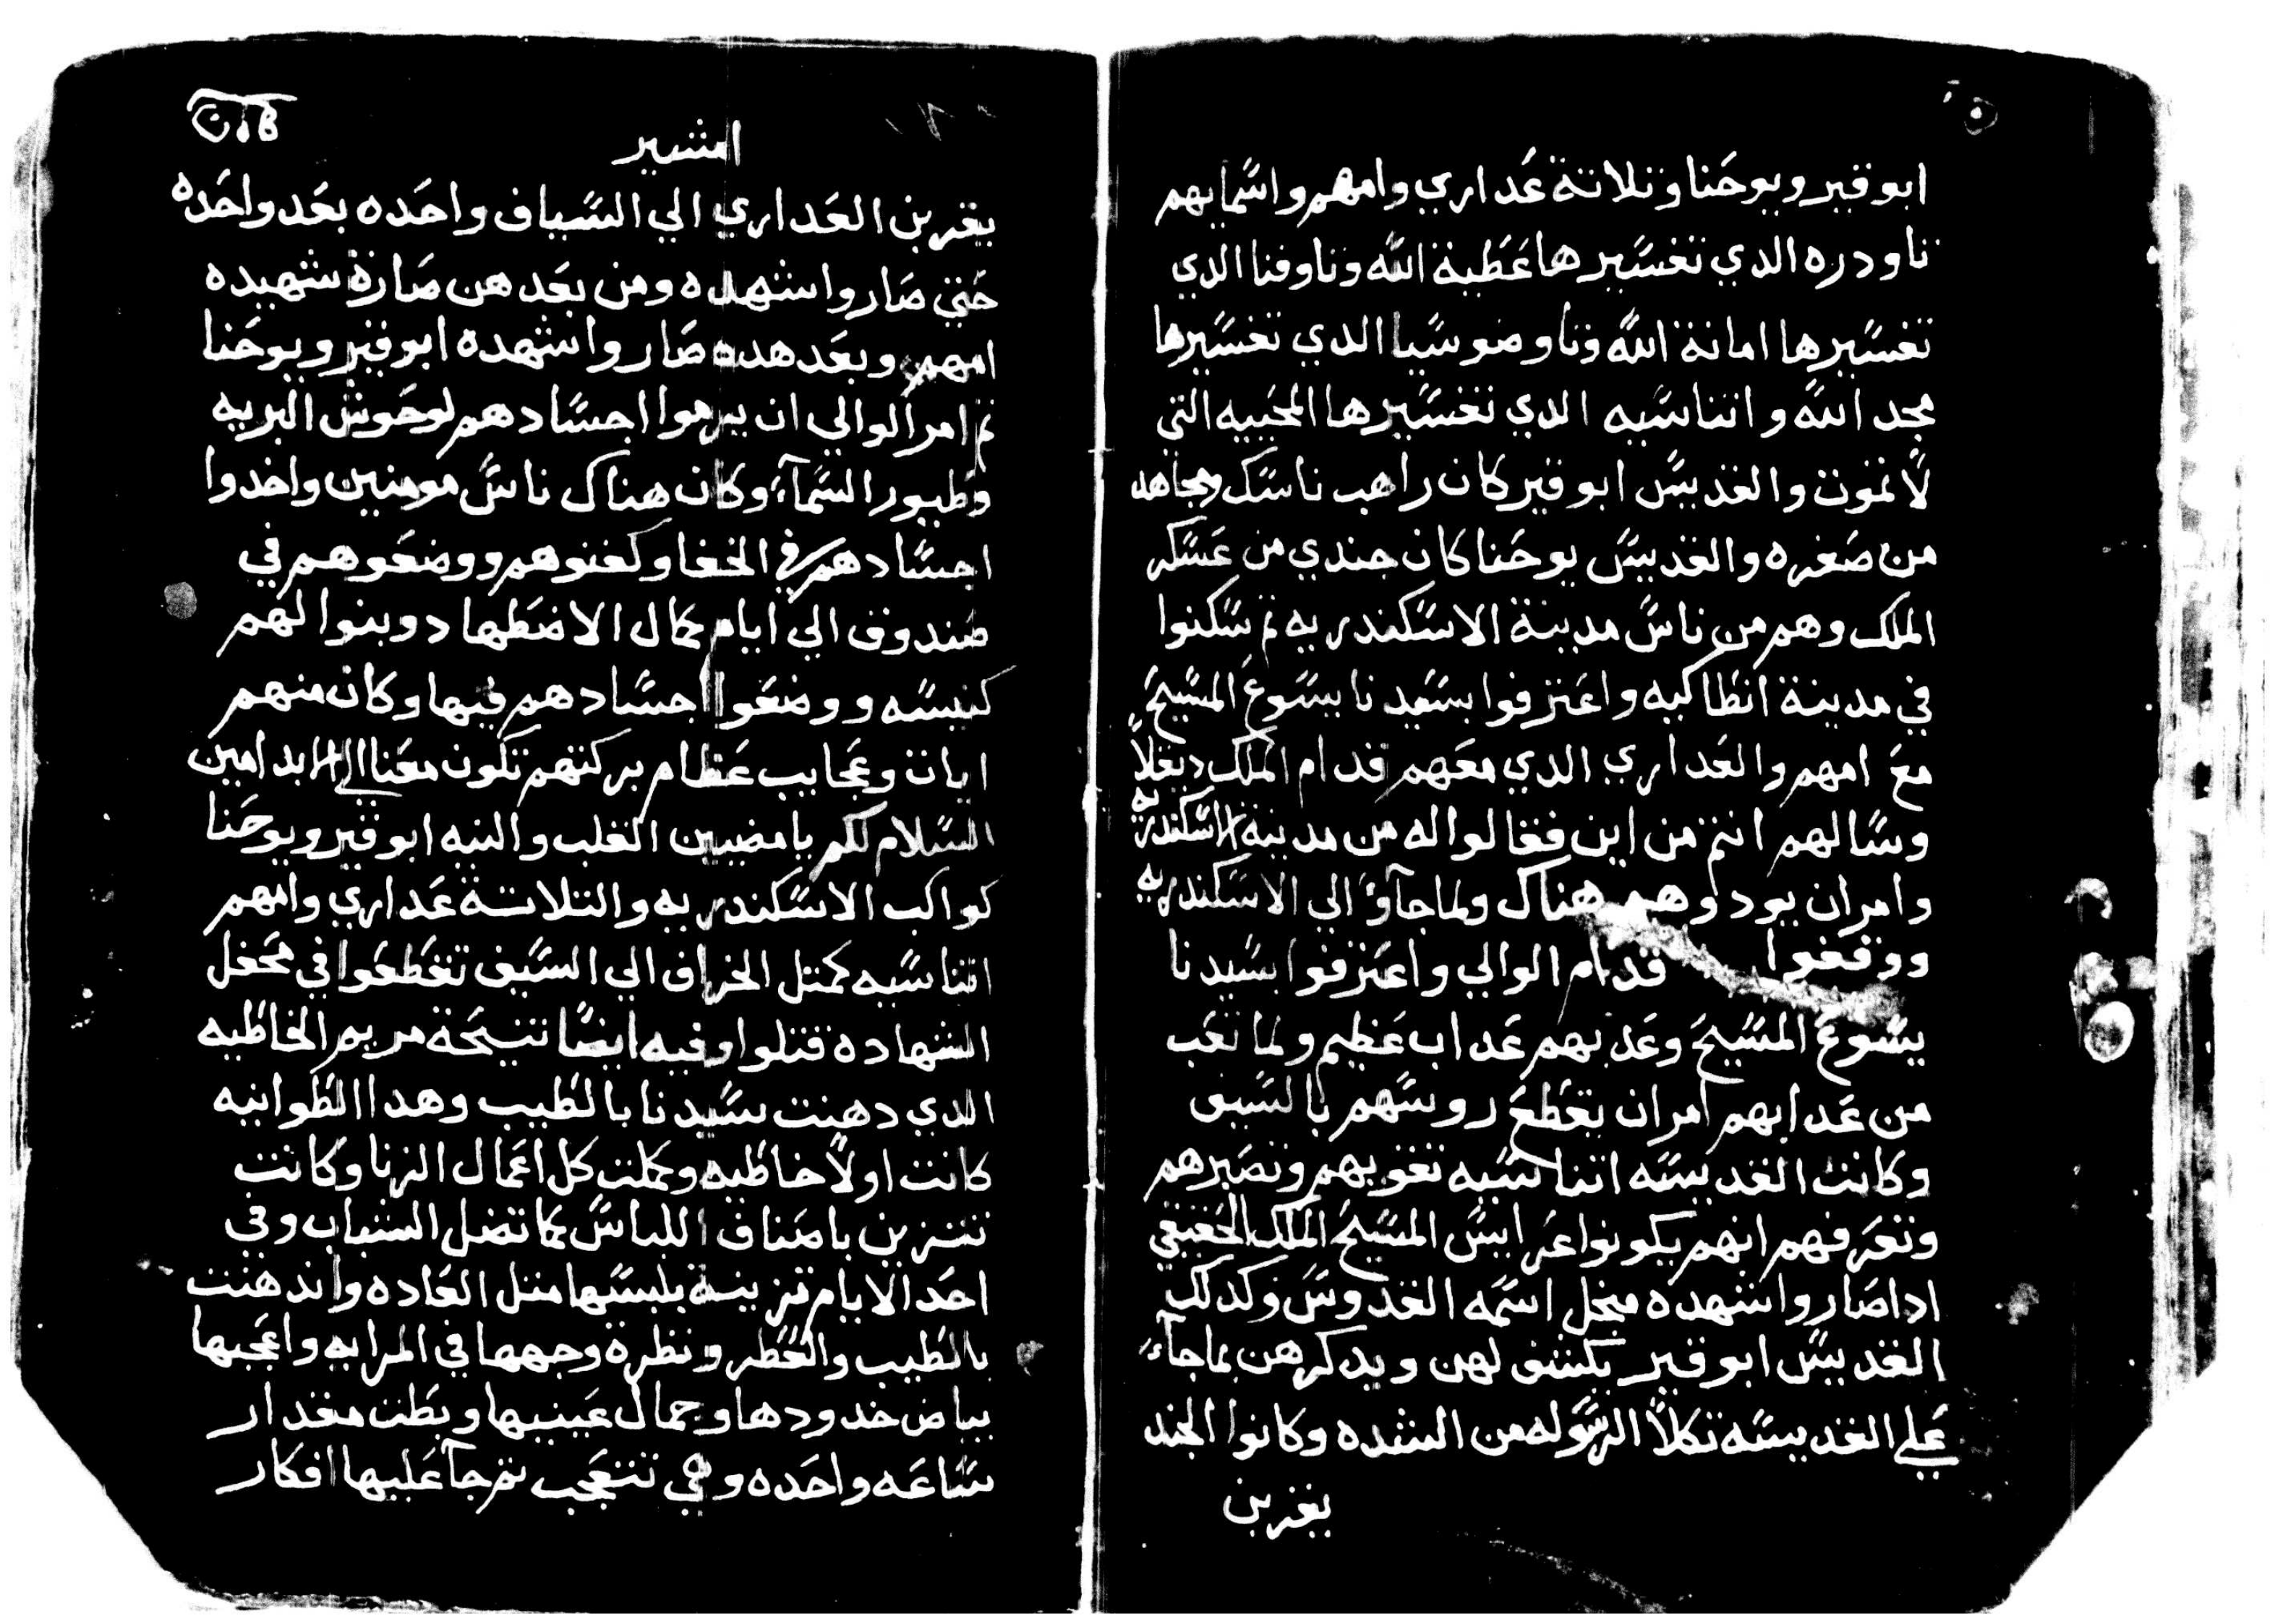 ابو قير ويوحنا وتلاتة عداري وامهم واسمايهم
تاودره الدي تفسيرها عطية الله وتاوفنا الدي
تفسيرها امانة الله وتاوضوسيا الدي تفسيرها
مجد الله واتناسيه الدي تفسيرها المحييه التي
لا تموت والقديس ابو قير كان راهب ناسك ومجاهد
من صغره والقديس يوحنا كان جندي من عسكر
الملك وهم من ناس مدينة الاسكندريه تم سكنوا
في مدينة انطاكيه واعترفوا بسيدنا يسوع المسيح
مع امهم والعداري الدي معهم قدام الملك دقلا
وسالهم انتم من اين فقالوا له من مدينة الاسكندريه
وامر ان يودوهم هناك ولما جآو الي الاسكندريه
ووقفوا قدام الوالي واعترفوا بسيدنا
يسوع المسيح وعدبهم عداب عظيم ولما تعب
من عدابهم امر ان يقطع روسهم بالسيف
وكانت القديسه اتناسيه تقويهم وتصبرهم
وتعرفهم انهم يكونوا عرايس المسيح الملك الحقيقي
ادا صاروا شهده مجل اسمه القدوس وكدلك
القديس ابو قير يكشف لهن ويدكرهن بما جآء
علي القديسه تكلا الرسوله من الشده وكانوا الجند
يقربن
امشير
يقربن العداري الي السياف واحده بعد واحده
حتي صاروا شهده ومن بعدهن صارة شهيده
امهم وبعد هده صاروا شهده ابو قير ويوحنا
تم امر الوالي ان يرموا اجسادهم لوحوش البريه
وطيور السمآء وكان هناك ناس مومنين واخدوا
اجسادهم في الخفا وكفنوهم ووضعوهم في
صندوق الي ايام كمال الاضطهاد وبنوا لهم
كنيسه ووضعوا اجسادهم فيها وكان منهم
ايات وعجايب عظام بركتهم تكون معنا الي الابد امين
السلام لكم يا مضيين القلب والنيه ابو قير ويوحنا
كواكب الاسكندريه والتلاتة عداري وامهم
اتناسيه كمتل الخراف الي السيف تقطعوا في محفل
الشهاده قتلوا وفيه ايضا تنيحة مريم الخاطيه
الدي دهنت سيدنا بالطيب وهدا الطوانيه
كانت اولا خاطيه وكملت كل اعمال الزنا وكانت
تتزين باصناف اللباس كما تضل الشباب وفي
احد الايام تزينة بلبسها متل العاده واندهنت
بالطيب والعطر ونظرة وجهها في المرايه واعجبها
بياض خدودها وجمال عينيها وبطت مقدار
ساعه واحده وهي تتعجب تم جآ عليها افكار